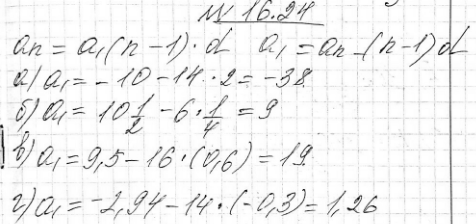 № 16.24
an = a₁(n-1)·d a₁ = an-(n-1)d
а) a₁ = -10-14·2 = -38
б) a₁ = 10 1/2 - 6·1/4 = 9
в) a₁ = 9,5-16·(0,6) = 19
г) a₁ = -2,94-14·(-0,3) = 1,26